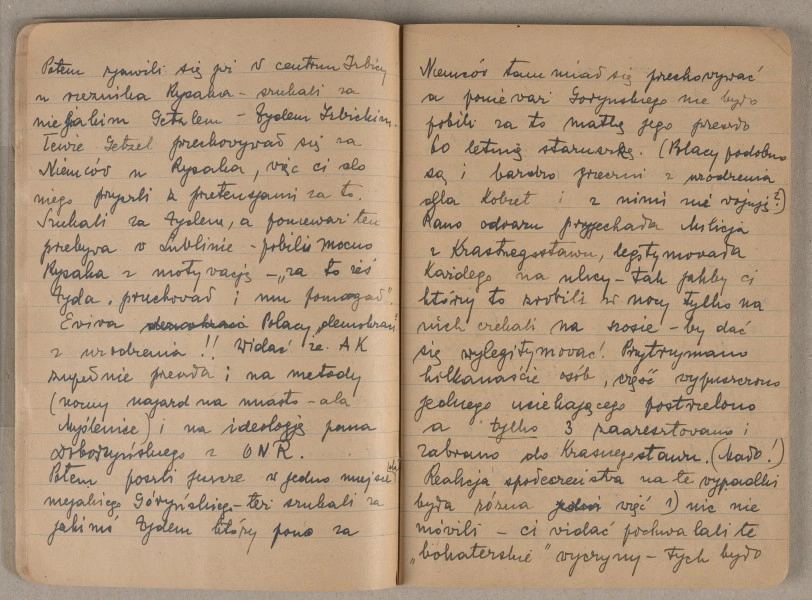 Potem zjawili się już v centrum Izbicy
u rzeźnika Rysaka - szukali za
niejakim Getzlem - Żydem Izbickim.
Tenże Getzel przechovywał się za
Niemców u Rysaka, więc ci do
niego przyszli z pretensjami za to.
Szukali za Żydem, a ponieważ ten
przebywa v Lublinie - pobili mocno
Rysaka z motywacją - "za to żeś
Żyda przechował i mu pomagał".
Eviva Polacy demokraci
z urodzenia !! Widać że AK
zupełnie przeszła i na metody
(nowy najazd na miasto - ala
Myślenice) i na ideologję pana
Doboszyńskiego z ONR.
Potem poszli jeszcze v jedno miejsce
niejakiego Góryńskiego - też szukali za
jakimś Żydem który pono za
Niemców tam miał się przechovywać
a ponieważ Goryńskiego nie było
pobili za to matkę jego przeszło
60 letnią staruszkę. (Polacy podobno
są i bardzo grzeczni z urodzenia
dla kobiet i z nimi nie vojują?)
Rano odrazu przyjechała Milicja
z Krasnegostawu, legitymowała
każdego na ulicy - tak jakby ci
którzy to zrobili w nocy tylko na
nich czekali na szosie - by dać
się wylegitymować! Przytrzymano
kilkanaście osób, część wypuszczono
jednego uciekającego postrzelono
a tylko 3 zaaresztowano i
zabrano do Krasnegostawu. (Mało!)
Reakcja społeczeństwa na te vypadki
była różna część 1) nic nie
móvili - ci vidać pochwalali te
"bohaterskie" wyczyny - tych było